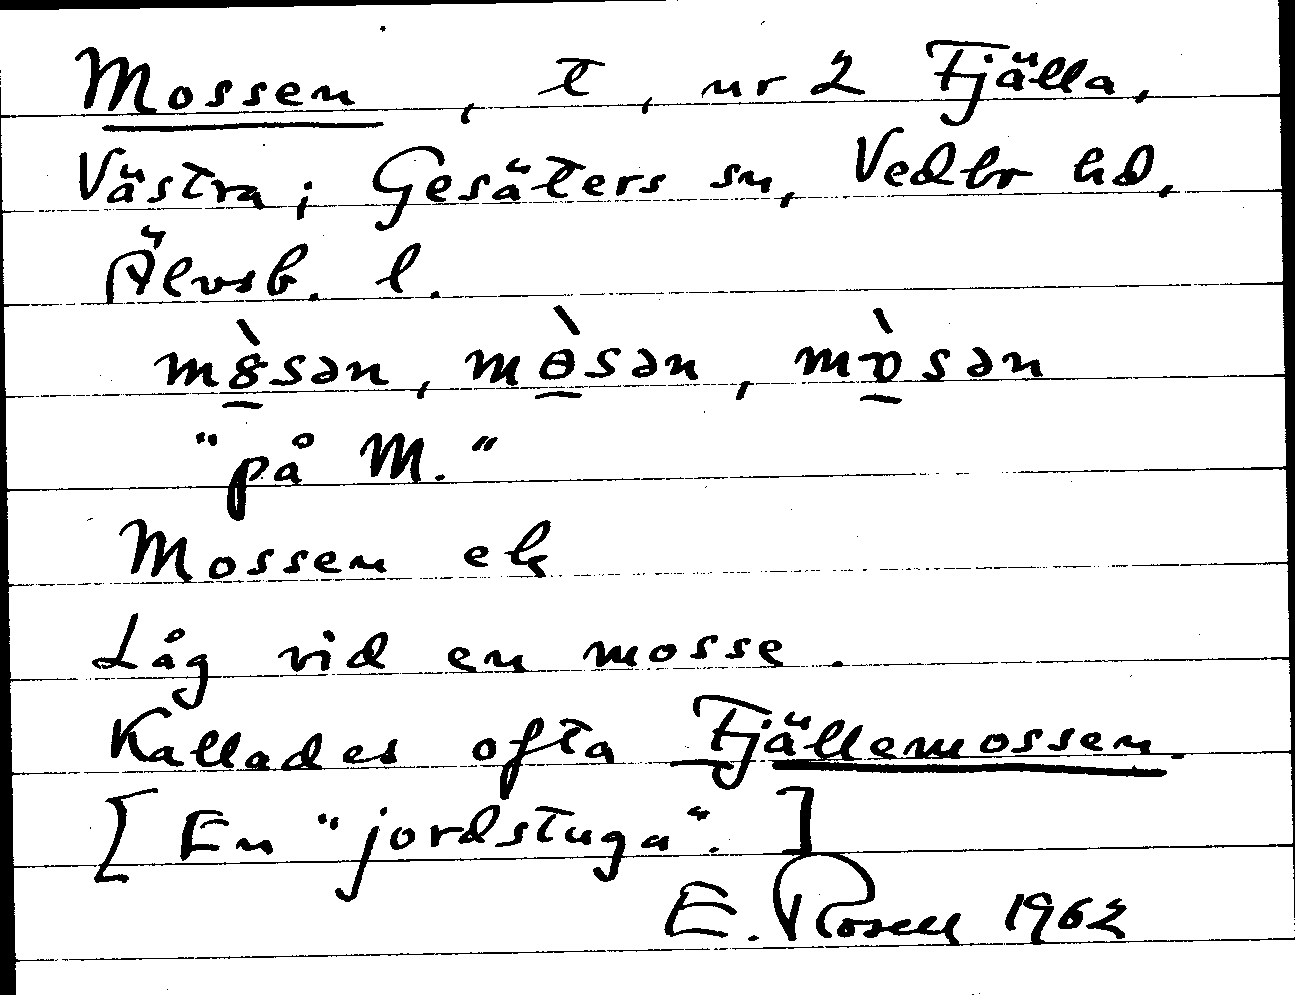 Mossen, t, nr 2 Fjälla,
Västra; Gesäters sn, Vedbo hd,
Älvsb. l.
mȣ̀sən, mɵ̀sən, mʋ̀sən
"på M."
Mossen ek
Låg vid en mosse.
Kallades ofta Fjällemossen.
[En "jordstuga".]
E. Rosell 1962